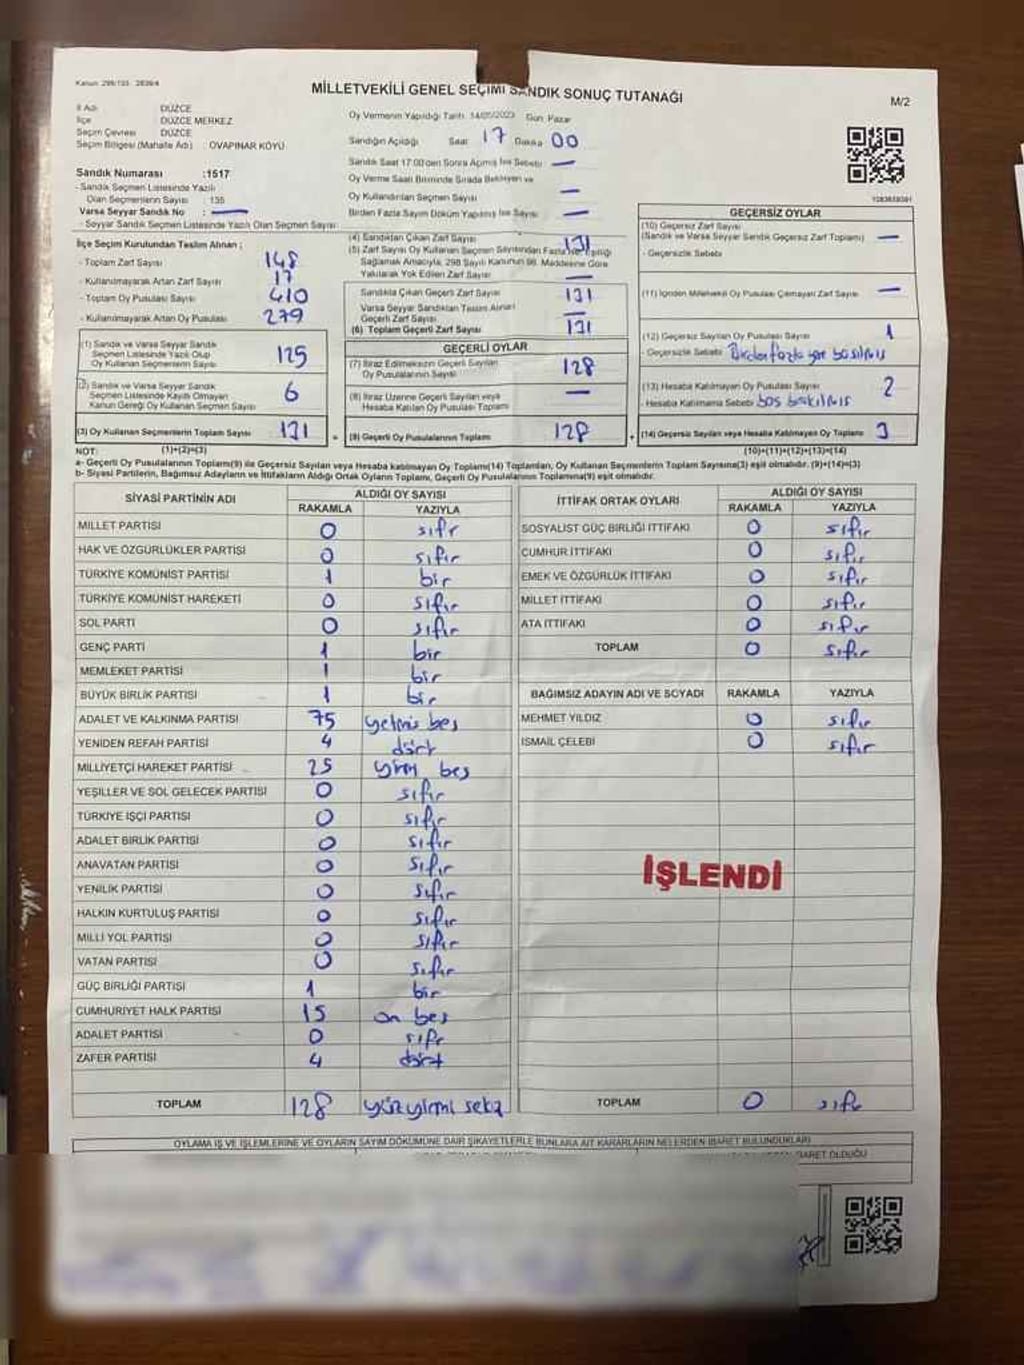 Kanun: 298/105 2839/4
MİLLETVEKİLİ GENEL SEÇİMİ SANDIK SONUÇ TUTANAĞI
M/2
İl Adı : DÜZCE
İlçe : DÜZCE MERKEZ
Seçim Çevresi : DÜZCE
Seçim Bölgesi (Mahalle Adı) : OVAPINAR KÖYÜ
Sandık Numarası :1517
- Sandık Seçmen Listesinde Yazılı
Olan Seçmenlerin Sayısı : 135
Varsa Seyyar Sandık No : —
- Seyyar Sandık Seçmen Listesinde Yazılı Olan Seçmen Sayısı
Oy Vermenin Yapıldığı Tarih 14/05/2023 Gün: Pazar
Sandığın Açıldığı Saat 17 Dakika 00
Sandık Saat 17:00'den Sonra Açılmış İse Sebebi —
Oy Verme Saati Bitiminde Sırada Bekleyen ve
Oy Kullandırılan Seçmen Sayısı —
Birden Fazla Sayım Döküm Yapılmış İse Sayısı —
1083659391
İlçe Seçim Kurulundan Teslim Alınan ;
- Toplam Zarf Sayısı 148
- Kullanılmayarak Artan Zarf Sayısı 17
- Toplam Oy Pusulası Sayısı 410
- Kullanılmayarak Artan Oy Pusulası 279
(1) Sandık ve Varsa Seyyar Sandık
Seçmen Listesinde Yazılı Olup
Oy Kullanan Seçmenlerin Sayısı 125
(2) Sandık ve Varsa Seyyar Sandık
Seçmen Listesinde Kayıtlı Olmayan
Kanun Gereği Oy Kullanan Seçmen Sayısı 6
(3) Oy Kullanan Seçmenlerin Toplam Sayısı 131
(4) Sandıktan Çıkan Zarf Sayısı 131
(5) Zarf Sayısı Oy Kullanan Seçmen Sayısından Fazla İse, Eşitliği
Sağlamak Amacıyla, 298 Sayılı Kanunun 98. Maddesine Göre
Yakılarak Yok Edilen Zarf Sayısı —
Sandıkta Çıkan Geçerli Zarf Sayısı 131
Varsa Seyyar Sandıktan Teslim Alınan
Geçerli Zarf Sayısı —
(6) Toplam Geçerli Zarf Sayısı 131
GEÇERLİ OYLAR
(7) İtiraz Edilmeksizin Geçerli Sayılan
Oy Pusulalarının Sayısı 128
(8) İtiraz Üzerine Geçerli Sayılan veya
Hesaba Katılan Oy Pusulası Toplamı —
= (9) Geçerli Oy Pusulalarının Toplamı 128
GEÇERSİZ OYLAR
(10) Geçersiz Zarf Sayısı
(Sandık ve Varsa Seyyar Sandık Geçersiz Zarf Toplamı) —
- Geçersizlik Sebebi
(11) İçinden Milletvekili Oy Pusulası Çıkmayan Zarf Sayısı —
(12) Geçersiz Sayılan Oy Pusulası Sayısı 1
- Geçersizlik Sebebi Birden fazla yere basılmış
(13) Hesaba Katılmayan Oy Pusulası Sayısı 2
- Hesaba Katılmama Sebebi boş bırakılmış
+ (14) Geçersiz Sayılan veya Hesaba Katılmayan Oy Toplamı 3
NOT: (1)+(2)=(3)
(10)+(11)+(12)+(13)=(14)
a- Geçerli Oy Pusulalarının Toplamı(9) ile Geçersiz Sayılan veya Hesaba katılmayan Oy Toplamı(14) Toplamları, Oy Kullanan Seçmenlerin Toplam Sayısına(3) eşit olmalıdır. (9)+(14)=(3)
b- Siyasi Partilerin, Bağımsız Adayların ve İttifakların Aldığı Ortak Oyların Toplamı, Geçerli Oy Pusulalarının Toplamına(9) eşit olmalıdır.
SİYASİ PARTİNİN ADI ALDIĞI OY SAYISI
RAKAMLA YAZIYLA
MİLLET PARTİSİ 0 sıfır
HAK VE ÖZGÜRLÜKLER PARTİSİ 0 sıfır
TÜRKİYE KOMÜNİST PARTİSİ 1 bir
TÜRKİYE KOMÜNİST HAREKETİ 0 sıfır
SOL PARTİ 0 sıfır
GENÇ PARTİ 1 bir
MEMLEKET PARTİSİ 1 bir
BÜYÜK BİRLİK PARTİSİ 1 bir
ADALET VE KALKINMA PARTİSİ 75 yetmiş beş
YENİDEN REFAH PARTİSİ 4 dört
MİLLİYETÇİ HAREKET PARTİSİ 25 yirmi beş
YEŞİLLER VE SOL GELECEK PARTİSİ 0 sıfır
TÜRKİYE İŞÇİ PARTİSİ 0 sıfır
ADALET BİRLİK PARTİSİ 0 sıfır
ANAVATAN PARTİSİ 0 sıfır
YENİLİK PARTİSİ 0 sıfır
HALKIN KURTULUŞ PARTİSİ 0 sıfır
MİLLİ YOL PARTİSİ 0 sıfır
VATAN PARTİSİ 0 sıfır
GÜÇ BİRLİĞİ PARTİSİ 1 bir
CUMHURİYET HALK PARTİSİ 15 on beş
ADALET PARTİSİ 0 sıfır
ZAFER PARTİSİ 4 dört
TOPLAM 128 yüz yirmi sekiz
İTTİFAK ORTAK OYLARI ALDIĞI OY SAYISI
RAKAMLA YAZIYLA
SOSYALİST GÜÇ BİRLİĞİ İTTİFAKI 0 sıfır
CUMHUR İTTİFAKI 0 sıfır
EMEK VE ÖZGÜRLÜK İTTİFAKI 0 sıfır
MİLLET İTTİFAKI 0 sıfır
ATA İTTİFAKI 0 sıfır
TOPLAM 0 sıfır
BAĞIMSIZ ADAYIN ADI VE SOYADI RAKAMLA YAZIYLA
MEHMET YILDIZ 0 sıfır
İSMAİL ÇELEBİ 0 sıfır
İŞLENDİ
TOPLAM 0 sıfır
OYLAMA İŞ VE İŞLEMLERİNE VE OYLARIN SAYIM DÖKÜMÜNE DAİR ŞİKAYETLERLE BUNLARA AİT KARARLARIN NELERDEN İBARET BULUNDUKLARI
İBARET OLDUĞU